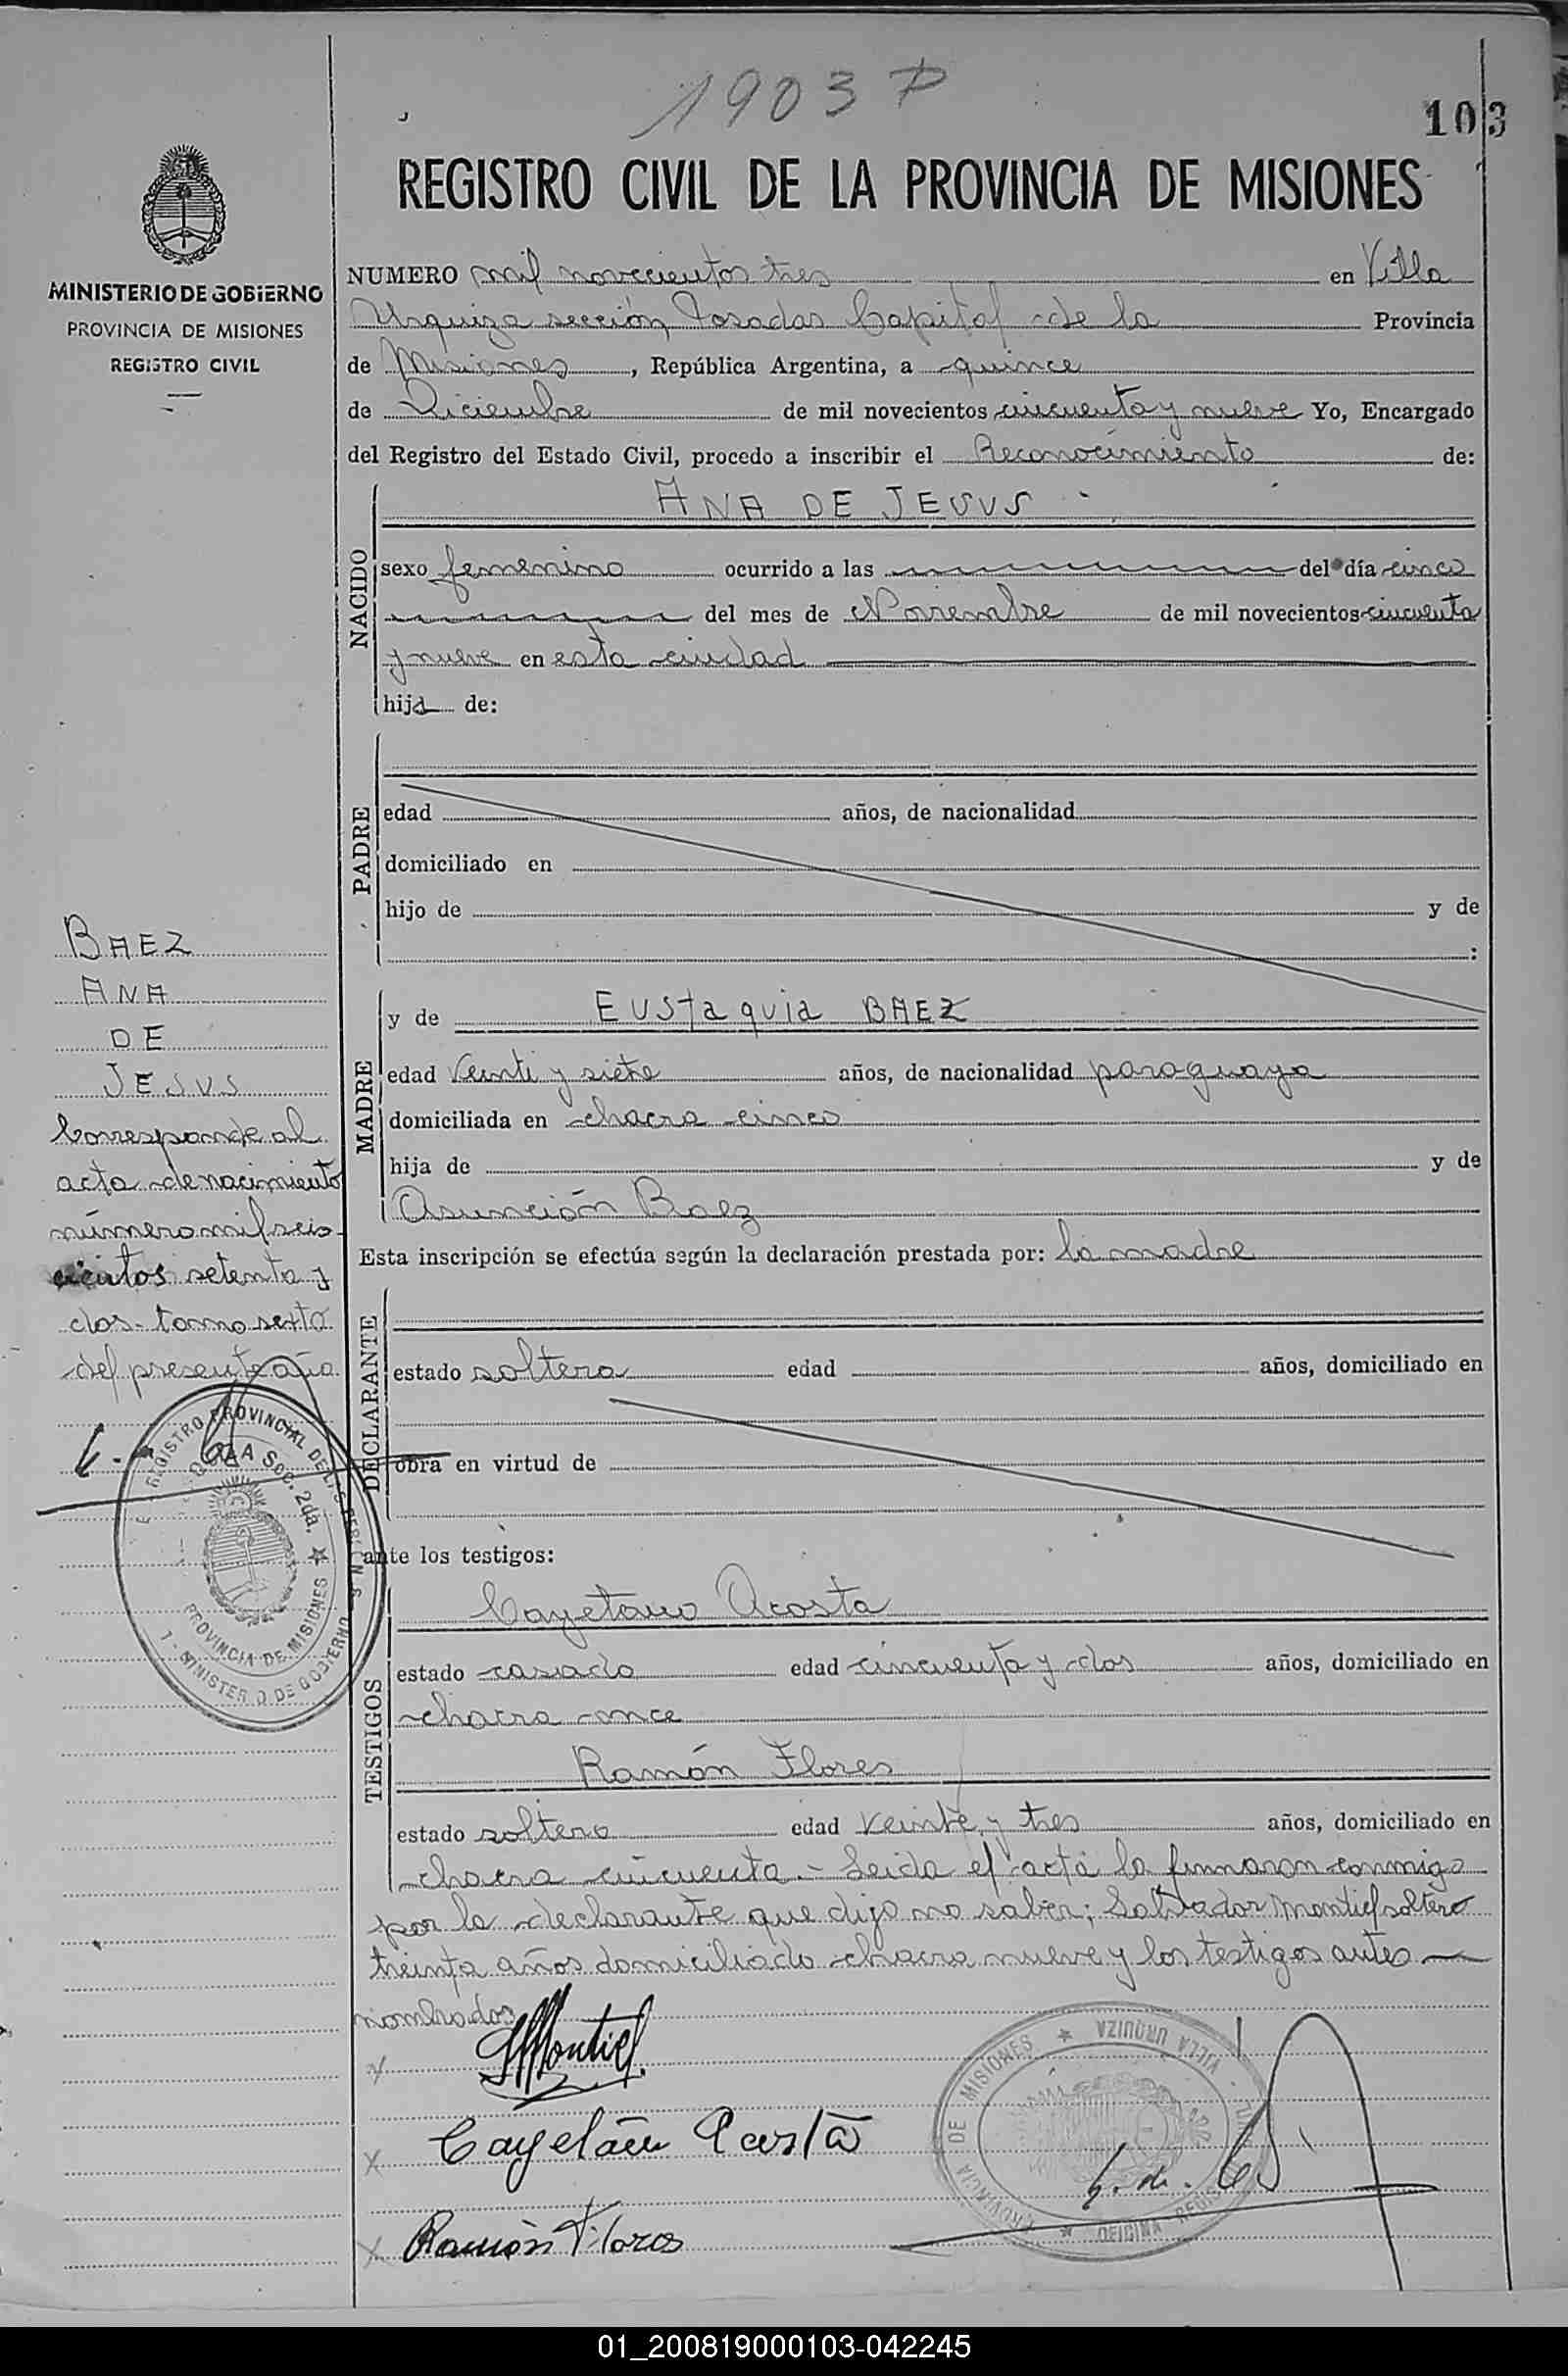 1903 P
103
REGISTRO CIVIL DE LA PROVINCIA DE MISIONES
MINISTERIO DE GOBIERNO
PROVINCIA DE MISIONES
REGISTRO CIVIL
NUMERO mil novecientos tres en Villa
Urquiza sección Posadas Capital de la Provincia
de Misiones, República Argentina, a quince
de Diciembre de mil novecientos cincuenta y nueve Yo, Encargado
del Registro del Estado Civil, procedo a inscribir el Reconocimiento de:
NACIDO
ANA DE JESUS
sexo femenino ocurrido a las del día cinco
del mes de Noviembre de mil novecientos cincuenta
y nueve en esta ciudad
hija de:
PADRE
edad años, de nacionalidad
domiciliado en
hijo de y de
:
MADRE
y de Eustaquia BAEZ
edad Veinti y siete años, de nacionalidad paraguaya
domiciliada en chacra cinco
hija de y de
Asunción Baez
Esta inscripción se efectúa según la declaración prestada por: la madre
DECLARANTE
estado soltera edad años, domiciliado en
obra en virtud de
ante los testigos:
TESTIGOS
Cayetano Acosta
estado casado edad cincuenta y dos años, domiciliado en
chacra once
Ramón Flores
estado soltero edad veinte y tres años, domiciliado en
chacra cincuenta.- Leida el acta la firmaron conmigo
por la declarante que dijo no saber; Salvador Montiel soltero
treinta años domiciliado chacra nueve y los testigos antes
nombrados
BAEZ
ANA
DE
JESUS
Corresponde al
acta de nacimiento
número mil seis
cientos setenta y
dos- tomo sexto
del presente año.
REGISTRO PROVINCIAL DE LAS PERSONAS
Soc. 2da.
PROVINCIA DE MISIONES
MINISTERIO DE GOBIERNO
SMontiel
Cayetano Acosta
Ramón Flores
PROVINCIA DE MISIONES ★ VILLA URQUIZA
OFICINA REGIS
01_200819000103-042245